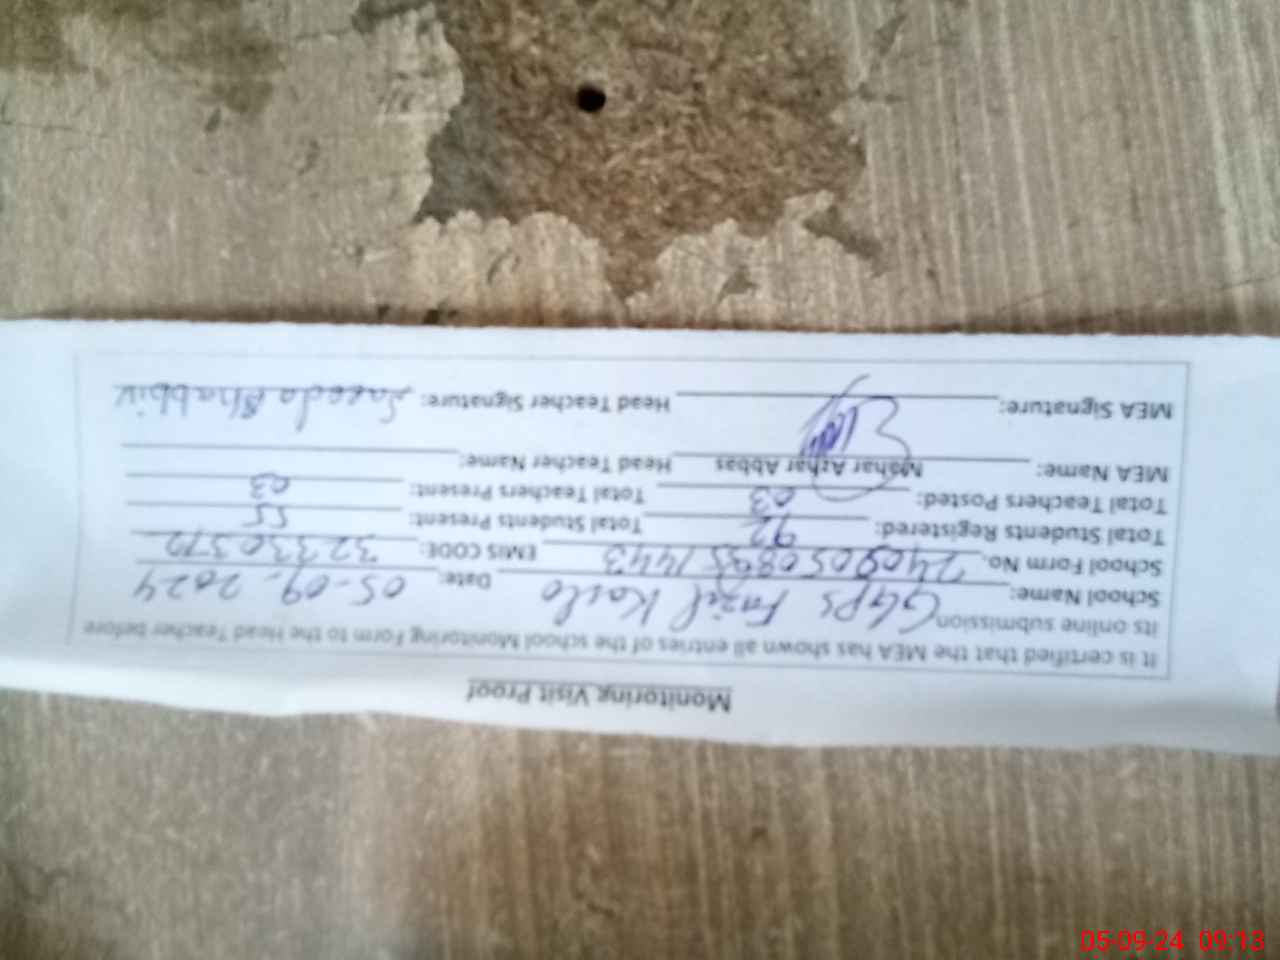 Monitoring Visit Proof
It is certified that the MEA has shown all entries of the school Monitoring Form to the Head Teacher before
its online submission
School Name: GGPS Fazil Kallo Date: 05-09-2024
School Form No. EMIS CODE: 32330372
Total Students Registered: 92 Total Students Present: 55
Total Teachers Posted: 03 Total Teachers Present: 03
MEA Name: Mahar Azhar Abbas Head Teacher Name:
MEA Signature: Head Teacher Signature: Saeeda Shabbir
05-09-24 09:13